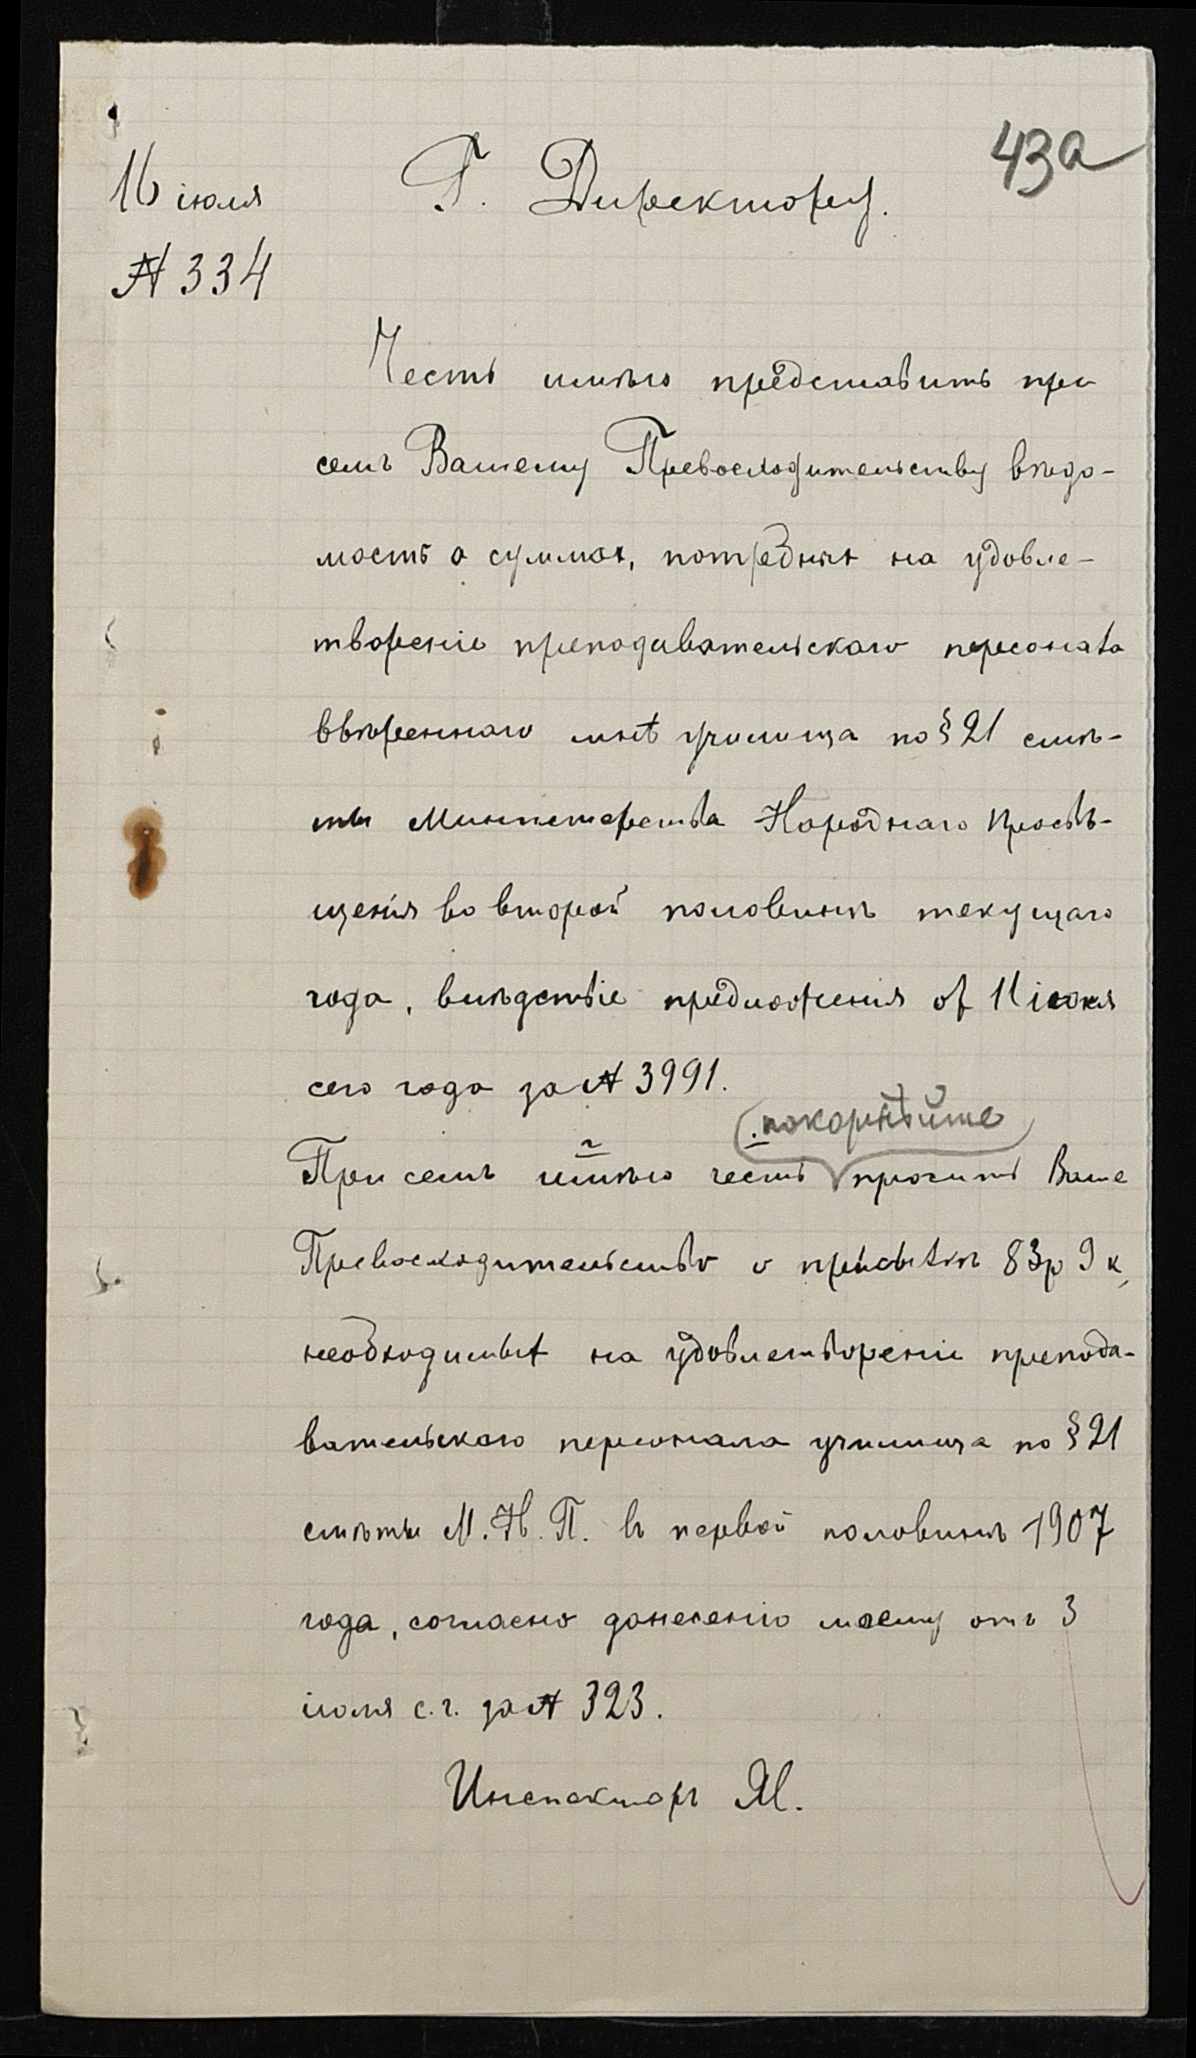 43а
16 іюля
№ 334
Г. Директору.
Честь имѣю представить при
семъ Вашему Превосходительству вѣдо-
мость о суммах, потребных на удовле-
твореніе преподавательскаго персонала
ввѣреннаго мнѣ училища по § 21 смѣ-
ты Министерства Народнаго Просвѣ-
щенія во второй половинѣ текущаго
года, вслѣдствіе предложенія от 11 іюля
сего года за № 3991.
покорнѣйше
При семъ имѣю честь просить Ваше
Превосходительство о присылкѣ 83 р 9 к,
необходимых на удовлетвореніе препода-
вательскаго персонала училища по § 21
смѣты М. Н. П. въ первой половинѣ 1907
года, согласно донесенію моему отъ 3
іюля с. г. за № 323.
Инспекторъ М.